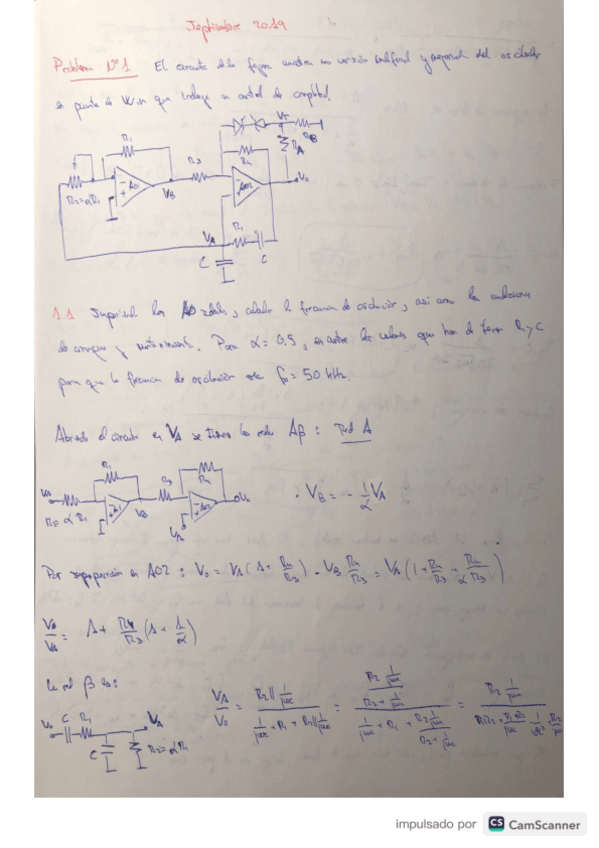 Septiembre 2019
Problema Nº1 El circuito de la figura muestra una versión y mejorada del oscilador
en puente de Wien que incluye un control de amplitud.
R1
VF
RB
RA
R3
R4
R2=αR1
AO1
VB
AO2
Vo
VA
R1
C
C
1.1 Suponiendo los AO ideales, calcular la frecuencia de oscilación, así como las condiciones
de arranque y mantenimiento. Para α = 0.5, los valores que han de tener R1 y C
para que la frecuencia de oscilación sea f0 = 50 kHz.
Abriendo el circuito en VA se tienen las redes Aβ : Red A
R1
R3
R4
VA
R2 αR1
VB
Vo
VA
VB = - 1/α VA
Por superposición en AO2 : Vo = VA (1 + R4/R3) - VB R4/R3 = VA (1 + R4/R3 + R4/αR3)
Vo/VA = 1 + R4/R3 (1 + 1/α)
La red β es:
Vo C R1 VA
C R2=αR1
VA/Vo = R2 || 1/jωC / (1/jωC + R1 + R2||1/jωC) =
impulsado por CS CamScanner